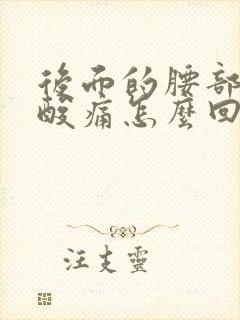 後面的腰部
酸痛怎麼回
汪支靈